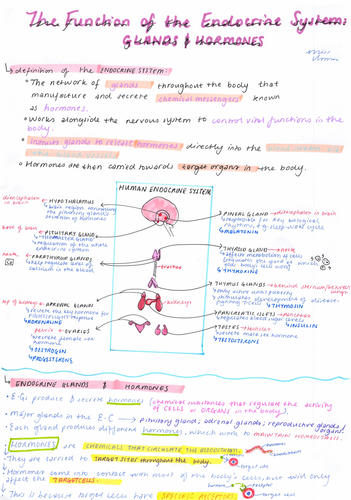 The Function of the Endocrine System:
GLANDS & HORMONES
definition of the ENDOCRINE SYSTEM:
The network of glands throughout the body that
manufacture and secrete chemical messengers known
as hormones.
Works alongside the nervous system to control vital functions in the
body.
glands to release hormones directly into the
Hormones are then carried towards target organs in the body.
HUMAN ENDOCRINE SYSTEM
diencephalon in brain
HYPOTHALAMUS
brain region controlling
the pituitary gland
base of brain
PITUITARY GLAND
"MASTER GLAND"
regulation of the whole
endocrine system
neck
PARATHYROID GLANDS
help regulate level of
calcium in the blood
top of kidneys
ADRENAL GLANDS
secrete the key hormone for
fight/flight response
ADRENALINE
pelvis
OVARIES
secrete female sex
hormones
OESTROGEN
PROGESTERONE
trachea
kidneys
PINEAL GLAND diencephalon in brain
responsible for key biological
rhythms, e.g. sleep-wake cycle
MELATONIN
THYROID GLAND neck
affects metabolism of cells
THYROXINE
THYMUS GLANDS behind sternum/between lungs
only active until puberty
stimulates development of disease-
fighting T-cells
THYMOSIN
PANCREATIC ISLETS pancreas
regulates blood sugar levels
INSULIN
TESTES testicles
secrete male sex
hormone
TESTOSTERONE
ENDOCRINE GLANDS & HORMONES
E-Gs produce & secrete hormones (chemical substances that regulate the activity
of CELLS or ORGANS in the body).
Major glands in the E-C → pituitary gland; adrenal glands; reproductive organs
Each gland produces different hormones, which work to MAINTAIN HOMEOSTASIS.
HORMONES are CHEMICALS THAT CIRCULATE THE BLOODSTREAM
They are carried to TARGET SITES throughout the body.
Hormones come into contact with most of the body's cells, but will only
affect the TARGET CELLS.
This is because target cells have SPECIFIC RECEPTORS
target cell